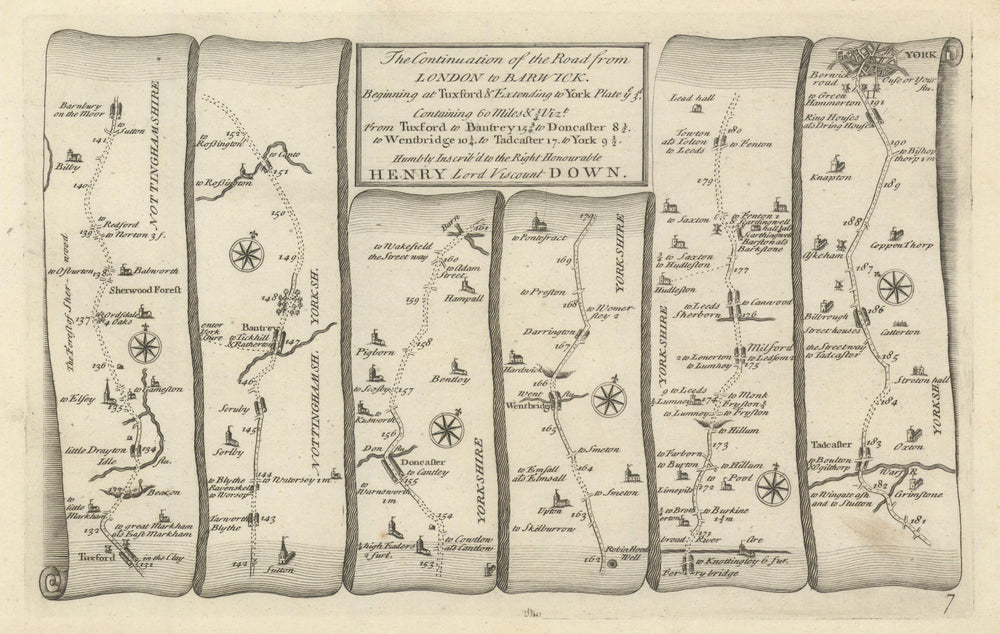 The Continuation of the Road from
LONDON to BARWICK.
Beginning at Tuxford & Extending to York Plate ye 3d.
Containing 60 Miles & ¾ Vizt.
From Tuxford to Bautrey 15¾ to Doncaster 8¾.
to Wentbridge 10¼. to Tadcaster 17. to York 9½.
Humbly Inscrib'd to the Right Honourable
HENRY Lord Viscount DOWN.
Barnbury
on the Moor
to Sutton
NOTTINGHAMSHIRE
Bilby
140
to Redford
139
to Norton 3 f.
to Osburton
138
Babworth
Sherwood Forest
The Forest of Sherwood
137
Ordsdale
4 Oaks
136
to Gameston
to Elsey
135
little Drayton
134
Idle
flu.
Beacon
to little Markham
132
to great Markham
als East Markham
Tuxford
in the Clay
131
152
to Rosington
to Cante
151
to Rossington
150
149
YORKSH.
148
enter York Shire
Bautrey
to Tickhill
& Ratherton
147
146
NOTTINGHAMSH.
Scruby
145
Sorlby
to Blythe
144
Ravenskelf
to Watersey 1 m
to Worsop
Tarworth
143
Blythe
142
Sutton
Barn
161
to Wakefield
the Street way
160
to Adam Street
159
Hampall
158
Pigborn
Bentley
to Scosby
157
Kusworth
156
Don
flu.
Doncaster
to Cantley
YORKSHIRE
155
to Warnsworth
1 m
154
to Cowtlon
als Cantlon
2 furl.
153
170
to Pontefract
YORKSHIRE
169
to Preston
168
to Womersley 2
Darrington
167
Hardwick
166
Went
flu
Wentbridge
165
to Smeton
164
to Emfall
als Elmsall
to Smeton
Upton
163
to Skelburrow
Robin Hood Well
162
Lead hall
180
Towton
als Toton
to Leeds
to Fenton
179
to Saxton
to Fenton 1
Scardingwell hall als
Scarthingwell
Barston als
Barkstone
to Saxton
to Hudleston
177
Hudleston
YORKSHIRE
to Leeds
to Canwood
Sherborn
176
Milford
to Lenerton
to Ledsom 2
2 to Lumney
175
9 to Leeds
to Monk Fryston ¾
½ Lumney
174
to Lumney
to Fryston
to Hillum
173
to Farborn
to Burton
to Hillum
172
Pool
Limepits
to Burkine
1½ m
171
River
Are
to Knottingley 6 fur.
Ferrybridge
YORK
Borwick road
Ouse or Your flu.
to Green Hammerton
191
Ring Houses
als Dring Houses
190
to Bishop thorp 1 m
Knapton
189
188
Coppen Thorp
Askeham
187
Bilbrough
186
Street houses
Catterton
the Streetway
to Tadcaster
185
Streton hall
184
YORKSH.
Tadcaster
183
Oxton
to Boulton
& Ogilthorp
Warf
flu
182
Grimstone
to Wingate ash
and to Stutton
181
7